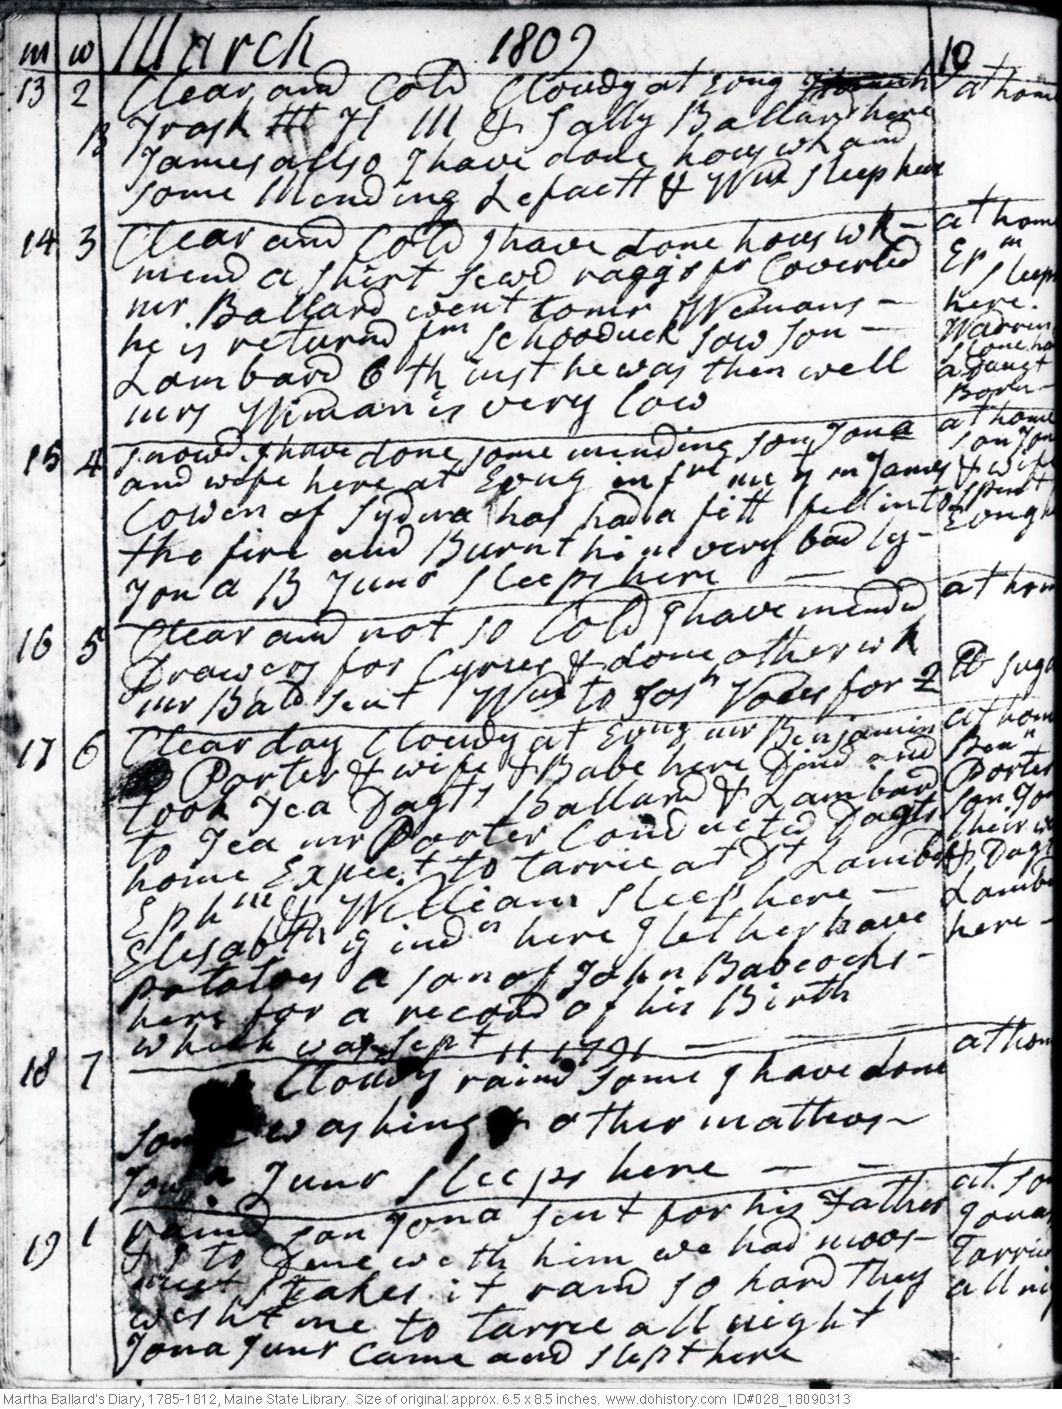 m w March 1809 10
13 2 Clear and Cold Cloudy at Evng at home
B Trask H M & Sally Ballard here
James allso I have done hous wk and
some Mending Lefaett & Wm sleep here
14 3 Clear and Cold I have done hous wk – at home
mend a shirt sewd raggs for Coverled Epm sleeps
mr Ballard went to mr Wemans – here.
he is returnd fm schooduck saw son – Warrin Stone has
Lambard 6th inst he was then well a Daugt
mrs Wiman is very low Born –
15 4 snowd. I have done some minding son Jona at home
and wife here at Evng infrm me yt James son Jona & wife
Cowen of Sydna has had a fitt fell into spent
the fire and Burnt him very badly – Evng
Jona B Junr sleeps here —
16 5 Clear and not so Cold I have mendd at home
Drawers for Cyrus & done other wk
mr Bald sent Wm to Josh Voses for 2 lb sugr
17 6 Clear day Cloudy at Evng mr Benjamin at home
Porter & wife & Babe here Dind and Benn Porter
took Tea Dagts Ballard & Lambard son Jon
to Tea mr Porter Conducted Dagts their w
home Expect to tarrie at Dt Lambds & Dagt
Ephm & William sleep here – Lambd
Elesabth here I let her have here –
potatoes a son of John Babcocks –
here for a record of his Birth
which was Sept 11 1791 — —
18 7 Cloudy raind some I have done at home
some washing & other matters –
Jona Junr sleeps here — —
19 1 raind son Jona sent for his Father at son Jonas
& I to Dine with him we had moos – Tarried
meet stakes it raind so hard they all ni
wisht me to tarrie all night
Jona Junr came and slept here
Martha Ballard's Diary, 1785-1812, Maine State Library. Size of original: approx. 6.5 x 8.5 inches. www.dohistory.com ID#028_18090313